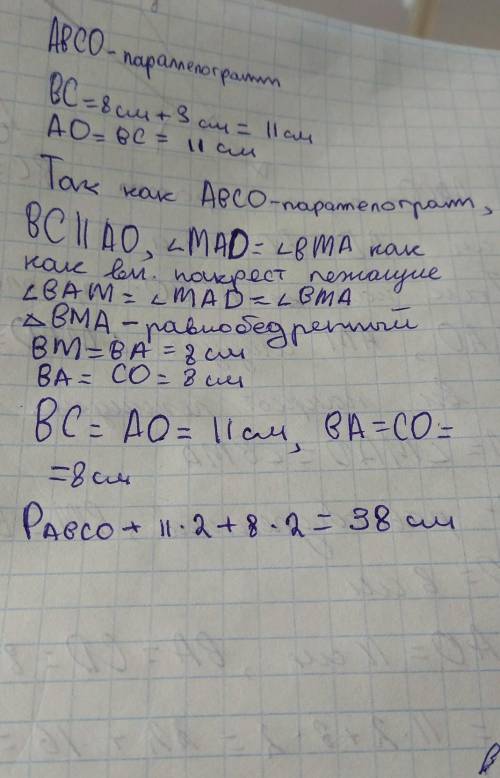 ABCO-параллелограмм
BC=8см+3см=11см
AO=BC=11см
Так как ABCO-паралелограм,
BC||AO, ∠MAD=∠BMA как
как вн. накрест лежащие
∠BAM=∠MAD=∠BMA
△BMA-равнобедренный
BM=BA=8см
BA=CO=8см
BC=AO=11см, BA=CO=
=8см
PABCO+11·2+8·2=38см
в